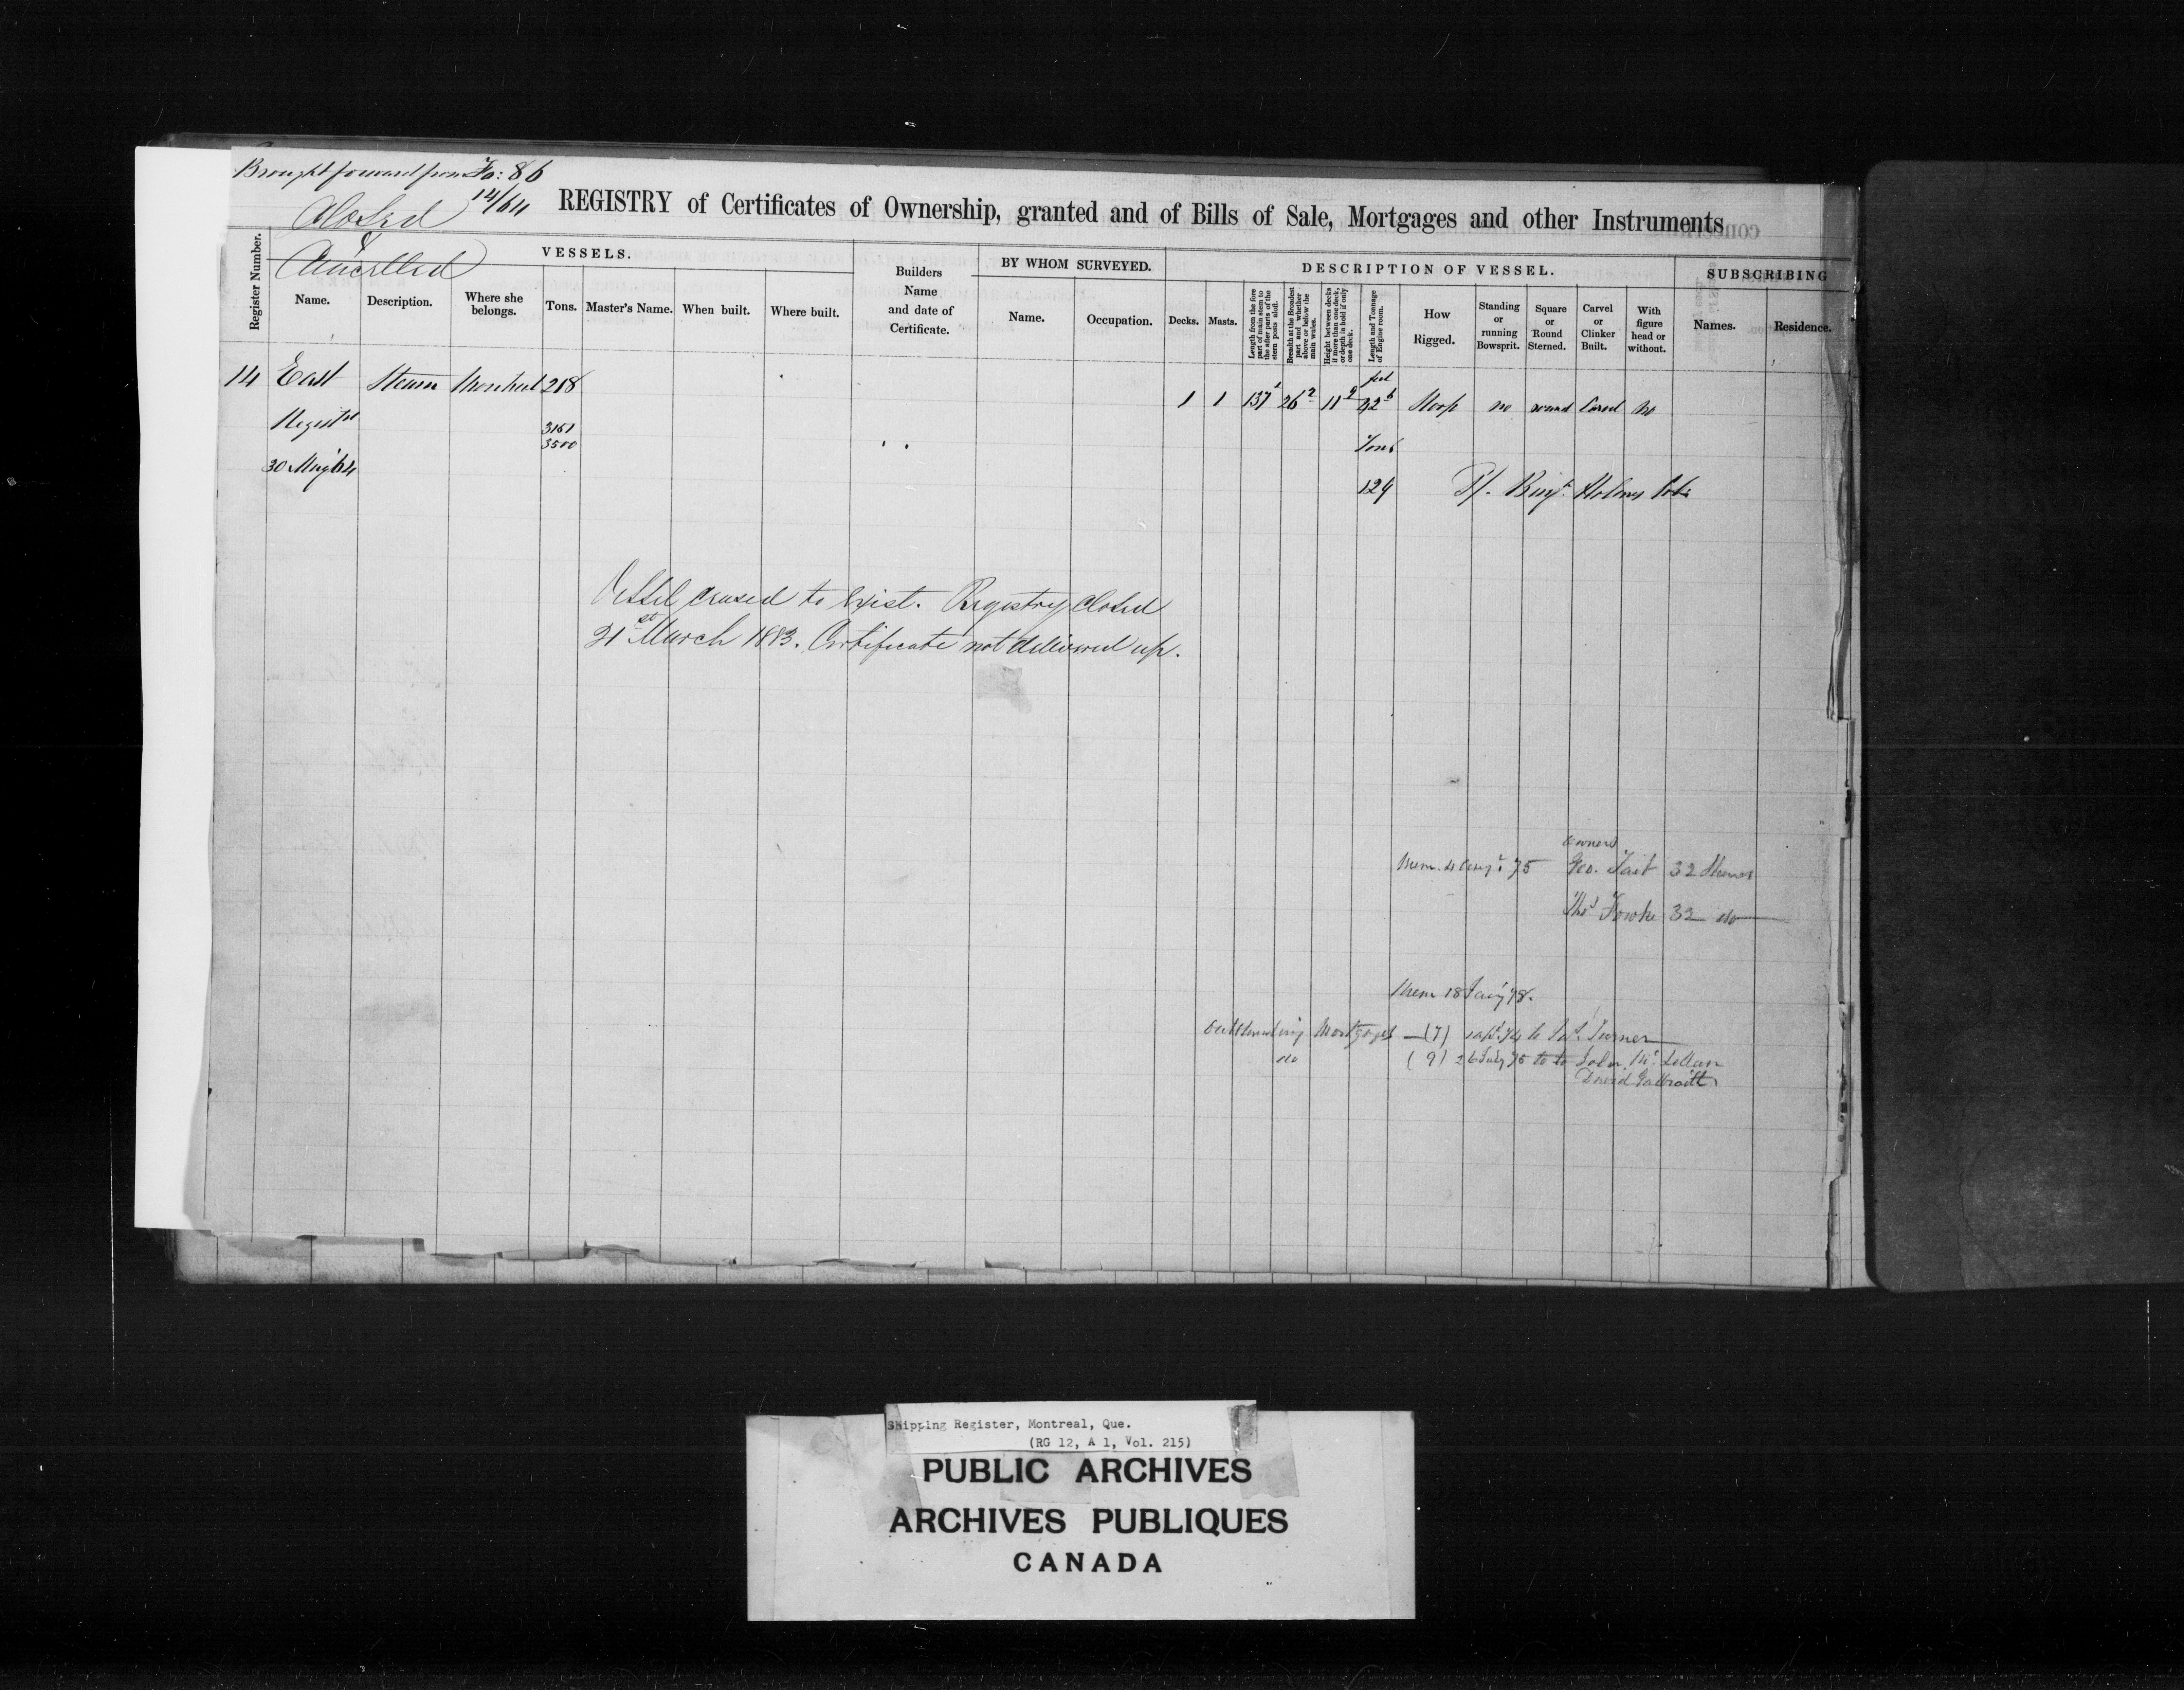 Brought forward from Fo: 86
14/64
Closed
&
Cancelled
REGISTRY of Certificates of Ownership, granted and of Bills of Sale, Mortgages and other Instruments
Register Number.
VESSELS.
Name.
Description.
Where she belongs.
Tons.
Master's Name.
When built.
Where built.
Builders Name and date of Certificate.
BY WHOM SURVEYED.
Name.
Occupation.
DESCRIPTION OF VESSEL.
Decks.
Masts.
Length from the fore part of main stem to the after parts of the stern posts aloft.
Breadth at the Broadest part and whether above or below the main wales.
Height between decks if more than one deck, or depth in hold if only one deck.
Length and Tonnage of Engine room.
How Rigged.
Standing or running Bowsprit.
Square or Round Sterned.
Carvel or Clinker Built.
With figure head or without.
SUBSCRIBING
Names.
Residence.
feet
14 East Steam Montreal 218 1 1 137 1 26 2 11 9 42 6 Sloop no round Carvel no
Regist'd
3161
3500
Tons
30 Aug '64
129
Benj. Holmes Col:
Vessel ceased to exist. Registry closed
31st March 1883. Certificate not delivered up.
owners
Mem. 4 Aug: 75 Geo. Tait 32 Shares
Thos Fowke 32 do
Mem 18 Jany 78.
Outstanding Mortgages (7) Sept. 74 to Turner
do (9) 26 July 75 to John McLellan
David Galbraith
Shipping Register, Montreal, Que.
(RG 12, A 1, Vol. 215)
PUBLIC ARCHIVES
ARCHIVES PUBLIQUES
CANADA